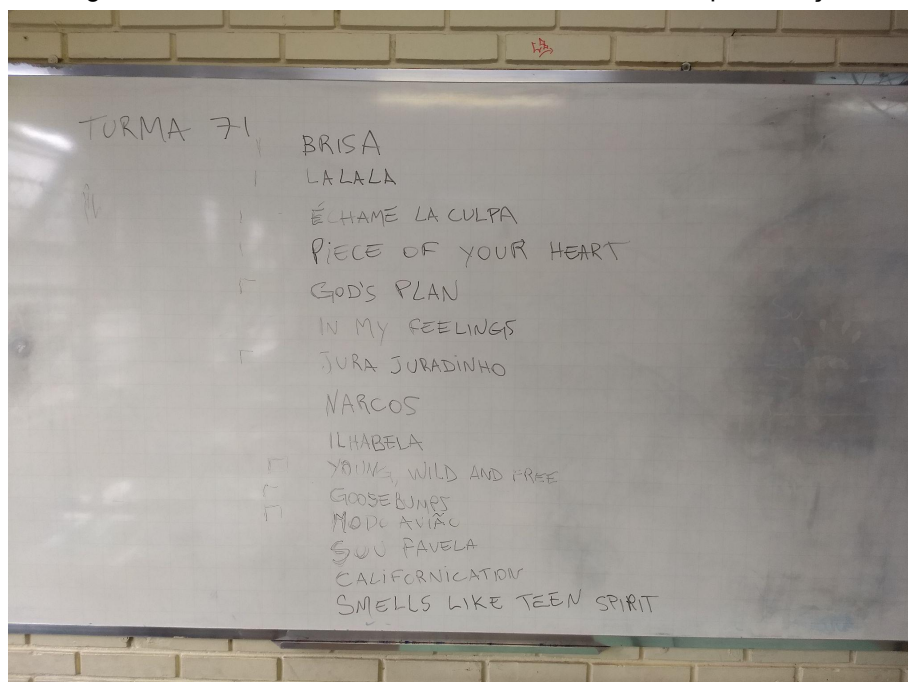 TURMA 71
BRISA
LALALA
ÉCHAME LA CULPA
PIECE OF YOUR HEART
GOD'S PLAN
IN MY FEELINGS
JURA JURADINHO
NARCOS
ILHABELA
YOUNG, WILD AND FREE
GOOSEBUMPS
MODO AVIÃO
SOU FAVELA
CALIFORNICATION
SMELLS LIKE TEEN SPIRIT